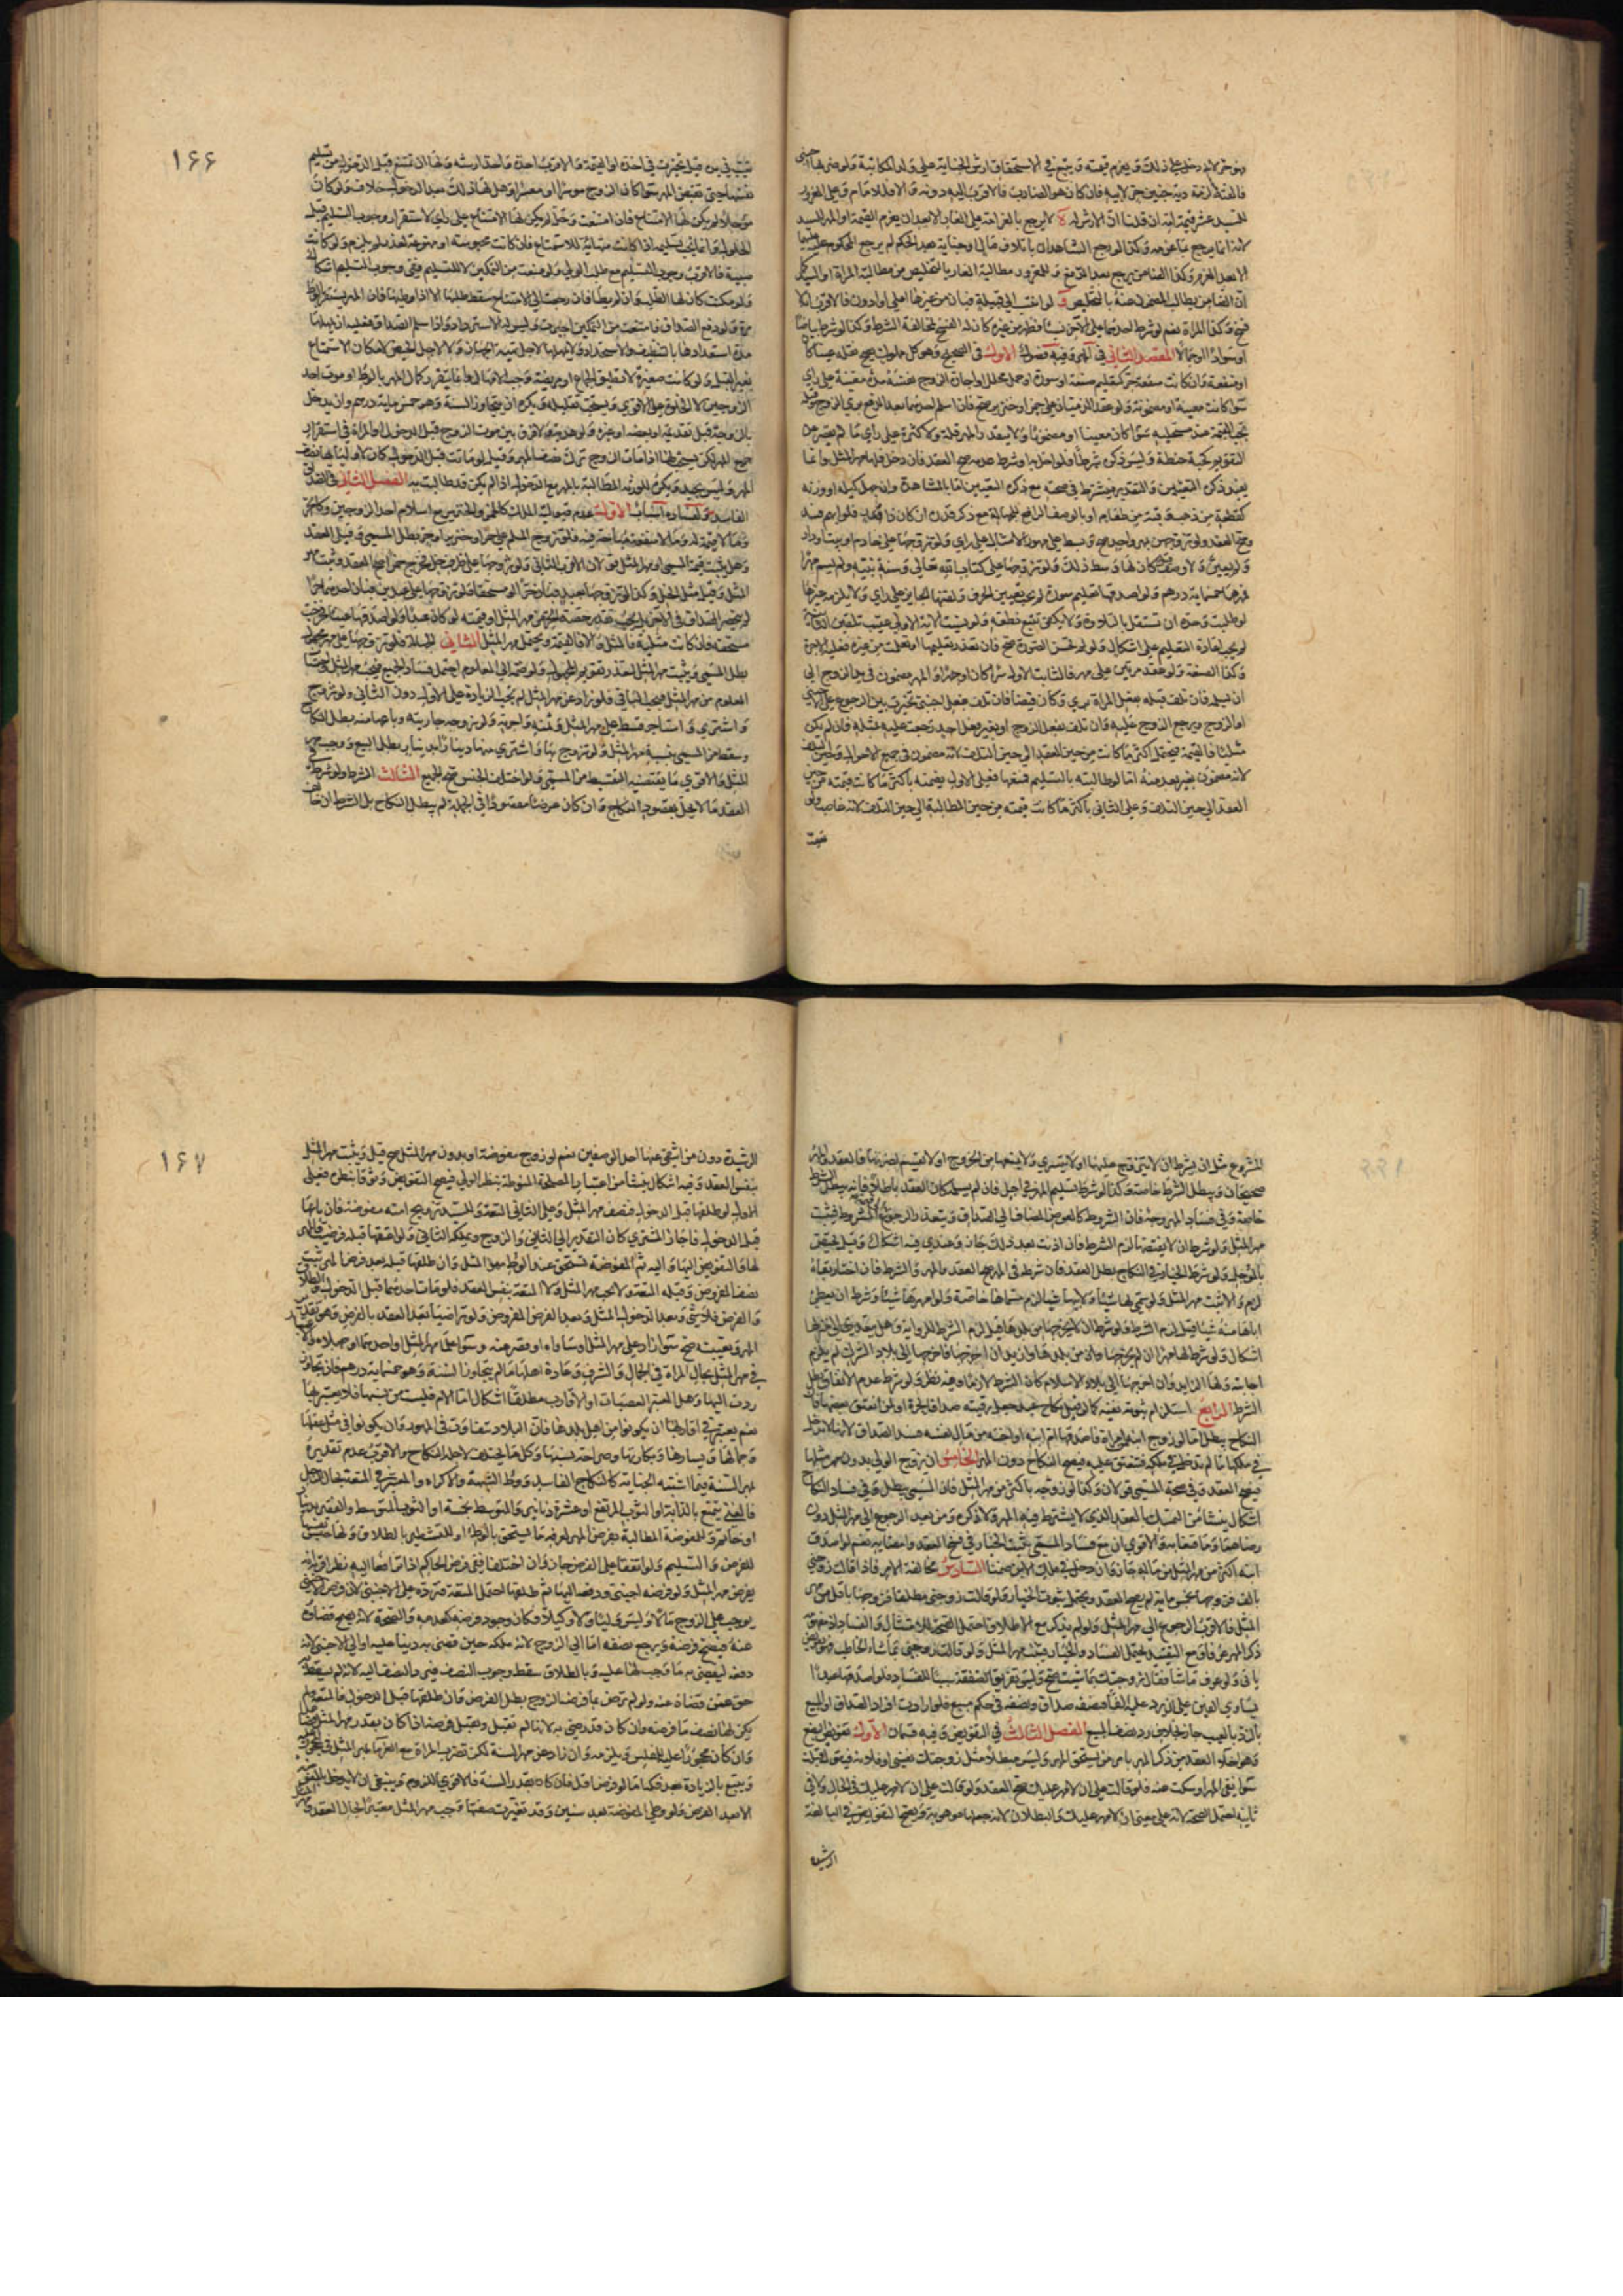 وهو حر لانه دخل على ذلك ويغرم قيمته ويتبع في الاستحقاق ارش الجناية على ولد المكاتبة ولو ضربها اجنبي
فالقته لزمه دية جنين حر لابيه فان كان هو الضارب فالاقرب اليه دونه والا فللامام وعلى المغرور
للسيد عشر قيمة امه ان قلنا ان الارش له لا يرجع بالغرامة على الغار الا بعد ان يغرم القيمة او المهر للسيد
لانه انما يرجع بما غرمه وكذا لو رجع الشاهدان باتلاف مال او جناية بعد الحكم لم يرجع المحكوم عليه عليهما
الا بعد الغرم وكذا الضامن يرجع بعد الدفع وللمغرور مطالبة الغار بالتخليص من مطالبة المراة او السيد كما
ان الضامن يطالب المضمون عنه بالتخليص لو انتسب الى قبيلة فبان من غيرها اعلى او ادون فالاقرب انه لا
فسخ وكذا المراة نعم لو شرط احدهما على الاخر نسبا فظهر من غيره كان له الفسخ لمخالفة الشرط وكذا لو شرط بياضا
او سوادا او جمالا المقصد الثاني في المهر وفيه فصول الاول في الصحيح وهو كل مملوك يصح نقله عينا كان
او منفعة وان كانت منفعة حر كتعليم صنعة او سورة او عمل محلل او اجارة الزوج نفسه مدة معينة على راي
سوا كانت معينة او مضمونة ولو عقد الذميان على خمر او خنزير صح فان اسلم احدهما بعد الدفع بري الزوج وقبله
تجب القيمة عند مستحليه سوا كان معينا او مضمونا ولا يتقدر المهر قلة ولا كثرة على راي ما لم يقصر عن
التقويم كحبة حنطة وليس ذكره شرطا فلو اخل به او شرط عدمه صح العقد فان دخل فلها مهر المثل وانما
يفيد ذكره التعيين والتقدير فيشترط في صحته مع ذكره التعيين اما بالمشاهدة وان جهل كيله او وزنه
كقطعة من ذهب وقبة من طعام او بالوصف الرافع للجهالة مع ذكر قدره ان كان ذا قدر فلو ابهم فسد
وصح العقد ولو تزوجهن بمهر واحد صح وبسط على مهور الامثال على راي ولو تزوجها على خادم او بيت او دار
ولم يعين ولا وصف كان لها وسط ذلك ولو تزوجها على كتاب الله تعالى وسنة نبيه ولم يسم مهرا
فمهرها خمسماية درهم ولو اصدقها تعليم سورة لم يجب تعيين الحرف ولقنها الجايز على راي ولا يلزمه غيرها
لو طلبت وحده ان تستقل بالتلاوة ولا يكفي تتبع نطقه ولو نسيت الاية الاولى عقيب تلقين الثانية
لم يجب اعادة التعليم على اشكال ولو لم يحسن السورة صح فان تعذر تعليمها او تعلمت من غيره فعليه الاجرة
وكذا الصنعة ولو عقد مرتين على مهر فالثابت الاول سرا كان او جهرا والمهر مضمون في يد الزوج الى
ان يسلمه فان تلف قبله بفعل المراة بري وكان قبضا وان تلف بفعل اجنبي تخيرت بين الرجوع على الاجنبي
او الزوج ويرجع الزوج عليه وان تلف بفعل الزوج او بغير فعل احد رجعت عليه بمثله فان لم يكن
مثليا فالقيمة فيحتمل اكثر ما كانت من حين العقد الى حين التلف لانه مضمون في جميع الاحوال وحين التلف
لانه مضمون بغير تعد منه اما لو طالبته بالتسليم فمنعها فعلى الاول يضمنه باكثر ما كانت قيمته من حين
العقد الى حين التلف وعلى الثاني باكثر ما كانت قيمته من حين المطالبة الى حين التلف لانه غاصب ولو
تعيب
تعيب في يده قيل تخيرت في اخذه او القيمة والاقرب اخذه واخذ ارشه ولها ان تمتنع قبل الدخول من تسليم
نفسها حتى تقبض المهر سوا كان الزوج موسرا او معسرا وهل لها ذلك بعد الدخول خلاف ولو كان
مؤجلا لم يكن لها الامتناع فان امتنعت وحل لم يكن لها الامتناع على راي لاستقرار وجوب التسليم قبل
الحلول وانما يجب تسليمه اذا كانت مهياة للاستمتاع فان كانت محبوسة او ممنوعة لعذر لم يلزم ولو كانت
صبية فالاقرب وجوب التسليم مع طلب الولي ولو منعت من التمكين لا للتسليم ففي وجوب التسليم اشكال
ولو مكنت كان لها الطلب وان لم يطا فان رجعت الى الامتناع سقط طلبها الا اذا وطئها فان المهر يستقر بالوطي
مرة ولو دفع الصداق فامتنعت من التمكين اجبرت وليس له الاسترداد واذا سلم الصداق فعليه ان يمهلها
مدة استعدادها بالتنظيف والاستحداد ولا يمهلها لاجل تهيئة الجهاز ولا لاجل الحيض لامكان الاستمتاع
بغير القبل ولو كانت صغيرة لا تطيق الجماع او مريضة وجب الامهال وانما يتقرر كمال المهر بالوطي او موت احد
الزوجين لا بالخلوة على الاقوى ويستحب تقليله ويكره ان يتجاوز السنة وهو خمسماية درهم وان يدخل
بالزوجة قبل تقديمه او بعضه او غيره ولو هدية ولا فرق بين موت الزوج قبل الدخول او المراة في استقرار
جميع المهر لكن يستحب لها اذا مات الزوج ترك نصف المهر وقيل لو ماتت قبل الدخول كان لاوليائها نصف
المهر وليس بجيد ويكره للورثة المطالبة بالمهر مع الدخول اذا لم يكن قد طالبت به الفصل الثاني في الصداق
الفاسد ولفساده اسباب الاول عدم قبوليته الملك كالخمر والخنزير مع اسلام احد الزوجين وكالحر
وما لا قيمة له وما لا منفعة فيها محترمة فلو تزوج المسلم على خمر او خنزير او حر بطل المسمى وقيل العقد
وهل يثبت قيمة المسمى او مهر المثل قولان الاقرب الثاني ولو تزوجها على ظرف خل فخرج خمرا صح العقد وثبت مهر
المثل وقيل مثل الخل وكذا لو تزوجها بعبد فبان حرا او مستحقا فلو تزوجها على عبدين فبان احدهما حرا
لم ينحصر الصداق في الاخر بل يجب بقدر حصة الحر من مهر المثل او قيمته لو كان عبدا ولو اصدقها عينا فخرجت
مستحقة فان كانت مثلية فالمثل والا فالقيمة ويحتمل مهر المثل الثاني الجهالة فلو تزوجها على مهر مجهول
بطل المسمى وثبت مهر المثل لتعذر تقويم المجهول ولو ضمه الى المعلوم احتمل فساد الجميع فيجب مهر المثل واحتساب
المعلوم من مهر المثل فيجب الباقي فلو زاد عن مهر المثل لم تجب الزيادة على الاول دون الثاني ولو تزوج
واشترى واستاجر قسط على مهر المثل وثمنه واجرته ولو زوجه جاريته وباعها منه بطل النكاح
وسقط من المسمى بنسبة مهر المثل ولو تزوج بها واشترى منها دينارا بدينار بطل البيع ووجب مهر
المثل والاقوى ما يقتضيه التقسيط من المسمى ولو اختلف الجنس صح الجميع الثالث الشرط ولو شرط في
العقد ما لا يخل بمقصود النكاح وان كان غرضا مقصودا في الجملة لم يبطل النكاح بل الشرط ان خالف
المشروع مثل ان يشرط ان لا يتزوج عليها او لا يتسرى ولا يمنعها من الخروج او لا يقسم لضرتها فالعقد والمهر
صحيحان ويبطل الشرط خاصة وكذا لو شرط تسليم المهر في اجل فان لم يسلمه كان العقد باطلا فانه يبطل الشرط
خاصة وفي فساد المهر وجه فان الشروط كالعوض المضاف الى الصداق ويتعذر الرجوع الى قيمة الشرط فيثبت
مهر المثل ولو شرط ان لا يفتضها لزم الشرط فان اذنت بعد ذلك جاز وعندي فيه اشكال وقيل يختص
بالمؤجل ولو شرط الخيار في النكاح بطل العقد فان شرطه في المهر صح العقد والمهر والشرط فان اختار بقاه
لزم والا ثبت مهر المثل ولو سمى لها شيئا ولابيها شيئا لزم مسماها خاصة ولو امهرها شيئا وشرط ان يعطي
اباها منه شيئا قيل لزم الشرط ولو شرط ان لا يخرجها من بلدها قيل لزم الشرط للرواية وهل يتعدى الى منزلها
اشكال ولو شرط لها مهرا ان لم يخرجها وان يزيد ان اخرجها فاخرجها الى بلاد الشرك لم يلزم
اجابته ولها الزايد وان اخرجها الى بلاد الاسلام كان الشرط لازما وفيه نظر ولو شرط عدم الانفاق بطل
الشرط الرابع استلزام ثبوته نفيه كما لو قبل نكاح عبد جعل رقبته صداقا لحرة او لمن انعتق بعضها فان
النكاح يبطل اما لو زوج ابنه امراة فاصدقها ام ابنه او اجنبية من مال نفسه فسد الصداق لانه لا يدخل
في ملكها ما لم يدخل في ملكه فتعتق عليه ويصح النكاح دون المهر الخامس ان يزوج الولي بدون مهر مثلها
فيصح العقد وفي صحة المسمى قولان وكذا لو زوجه باكثر من مهر المثل فان المسمى يبطل وفي فساد النكاح
اشكال ينشا من التمسك بالعقد الذي لا يشترط فيه المهر ولا ذكره ومن بعد الرجوع الى مهر المثل دون
رضاهما وما قنعا به والاقوى ان مع فساد المسمى يثبت الخيار في فسخ العقد وامضايه نعم لو اصدق
ابنه اكثر من مهر المثل من ماله جاز وان دخل في ملك الابن ضمنا السادس مخالفة الامر فاذا قالت زوجني
بالف فزوجها بخمسماية لم يصح العقد ويحتمل ثبوت الخيار ولو قالت زوجني مطلقا فزوجها باقل من مهر
المثل فالاقرب الرجوع الى مهر المثل ولو لم يذكر مع الاطلاق احتمل الصحة للامتثال والفساد اذ مفهومه
ذكر المهر عرفا ومع التقييد يحتمل الفساد والخيار فيثبت مهر المثل ولو قالت زوجني بما شاء الخاطب
يابى ولو عرف ما شا فقال زوجتك بما شئت صح وليس تفريق الصفقة سببا للفساد فلو اصدقها عبدا
يساوي الفين على ان ترد عليه الفا فنصفه صداق ونصفه في حكم مبيع فلو ارادت افراد الصداق او المبيع
بالرد بالعيب جاز بخلاف رد نصف المبيع الفصل الثالث في التفويض وفيه قسمان الاول تفويض البضع
وهو اخلاء العقد من ذكر المهر بامر من يستحق المهر وليس مبطلا مثل زوجتك نفسي او فلانة فيقول قبلت
سوا نفى المهر او سكت عنه فلو قالت على ان لا مهر عليك صح العقد ولو قالت على ان لا مهر عليك في الحال ولا في
ثانيه احتمل الصحة لانه على معنى ان لا مهر عليك والبطلان لانه جعلها موهوبة ويصح التفويض في البالغة
الرشيدة
الرشيدة دون من انتفى عنها احد الوصفين نعم لو زوج مفوضة او بدون مهر المثل صح قيل ويثبت مهر المثل
بنفس العقد وفيه اشكال ينشا من اعتبار المصلحة المنوطة بنظر الولي فيصح التفويض وثوقا بنظره فعلى
الاول لو طلقها قبل الدخول فنصف مهر المثل وعلى الثاني المتعة والسيد تزويج امته مفوضة فان باعها
قبل الدخول فاجاز المشتري كان التقدير الى الثاني والزوج ويملكه الثاني ولو اعتقها قبله فرضيت فالمهر
لها والتفويض اليها واليه ثم المفوضة تستحق عند الوطي مهر المثل وان طلقها قبله بعد فرض المهر ثبت
نصف المفروض وقبله المتعة ولا يجب مهر المثل ولا المتعة بنفس العقد فلو مات احدهما قبل الدخول والطلاق
والفرض فلا شي وبعد الدخول المثل وبعد الفرض المفروض ولو تراضيا بعد العقد بالفرض وهو تقدير
المهر وتعيينه صح سوا زاد على مهر المثل او ساواه او قصر عنه وسوا علما مهر المثل او احدهما او جهلاه والاعتبار
في مهر المثل بحال المراة في الجمال والشرف وعادة اهلها ما لم يتجاوز السنة وهو خمسماية درهم فان تجاوز
ردت اليها وهل المعتبر العصبات او الاقارب مطلقا اشكال اما الام فليست من نسبها فلا يعتبر بها
نعم يعتبر في اقاربها ان يكونوا من اهل بلدها فان البلاد تتفاوت في المهور وان يكونوا في مثل عقلها
وجمالها ويسارها وبكارتها وصراحة نسبها وكل ما يختلف لاجله النكاح والاقرب عدم تقديره
بمهر السنة فيما اشبه الجناية كالنكاح الفاسد ووطي الشبهة والاكراه والمعتبر في المتعة بحال الرجل
فالغني يمتع بالدابة او الثوب المرتفع او عشرة دنانير والمتوسط بخمسة او الثوب المتوسط والفقير بدينار
او خاتم وللمفوضة المطالبة بفرض المهر لتعرف ما تستحق بالوطي او للتشطير بالطلاق ولها حبس نفسها
للفرض والتسليم ولو اتفقا على الفرض جاز وان اختلفا ففي فرض الحاكم اذا ترافعا اليه نظر اقربه انه
يفرض مهر المثل ولو فرضه اجنبي ودفعه اليها ثم طلقها احتمل المتعة فترده على الاجنبي لان فرض الاجنبي
يوجب على الزوج مالا وليس وليا ولا وكيلا فكان وجود فرضه كعدمه والصحة لانه يصح قضاؤه
عنه فيصح فرضه ويرجع نصفه اما الى الزوج لانه ملكه حين قضى به دينا عليه او الى الاجنبي لانه
دفعه ليقضي به ما وجب لها عليه وبالطلاق سقط وجوب النصف فيرد النصف اليه لانه لم يسقط به
حق عمن قضاه عنه ولو لم ترض بما فرضه الزوج بطل الفرض فان طلقها قبل الدخول فالمتعة ولم
يكن لها نصف ما فرضه وان كان قد رضي به لانها لم تقبل ويقبل فرضه اذا كان بقدر مهر المثل فما دون
وان كان محجورا عليه للفلس ويلزمه وان زاد عن مهر السنة لكن تضرب المراة مع الغرماء بمهر المثل
ويتبع بالزيادة بعد فكه اما لو فرضا اقل فان كان بقدر السنة فالاقوى اللزوم وينبغي ان لا يدخل بالمفوضة
الا بعد الفرض ولو وطي المفوضة بعد سنين وقد تغيرت صفتها وجب مهر المثل معتبرا بحال العقد
١۶۶
١۶٧